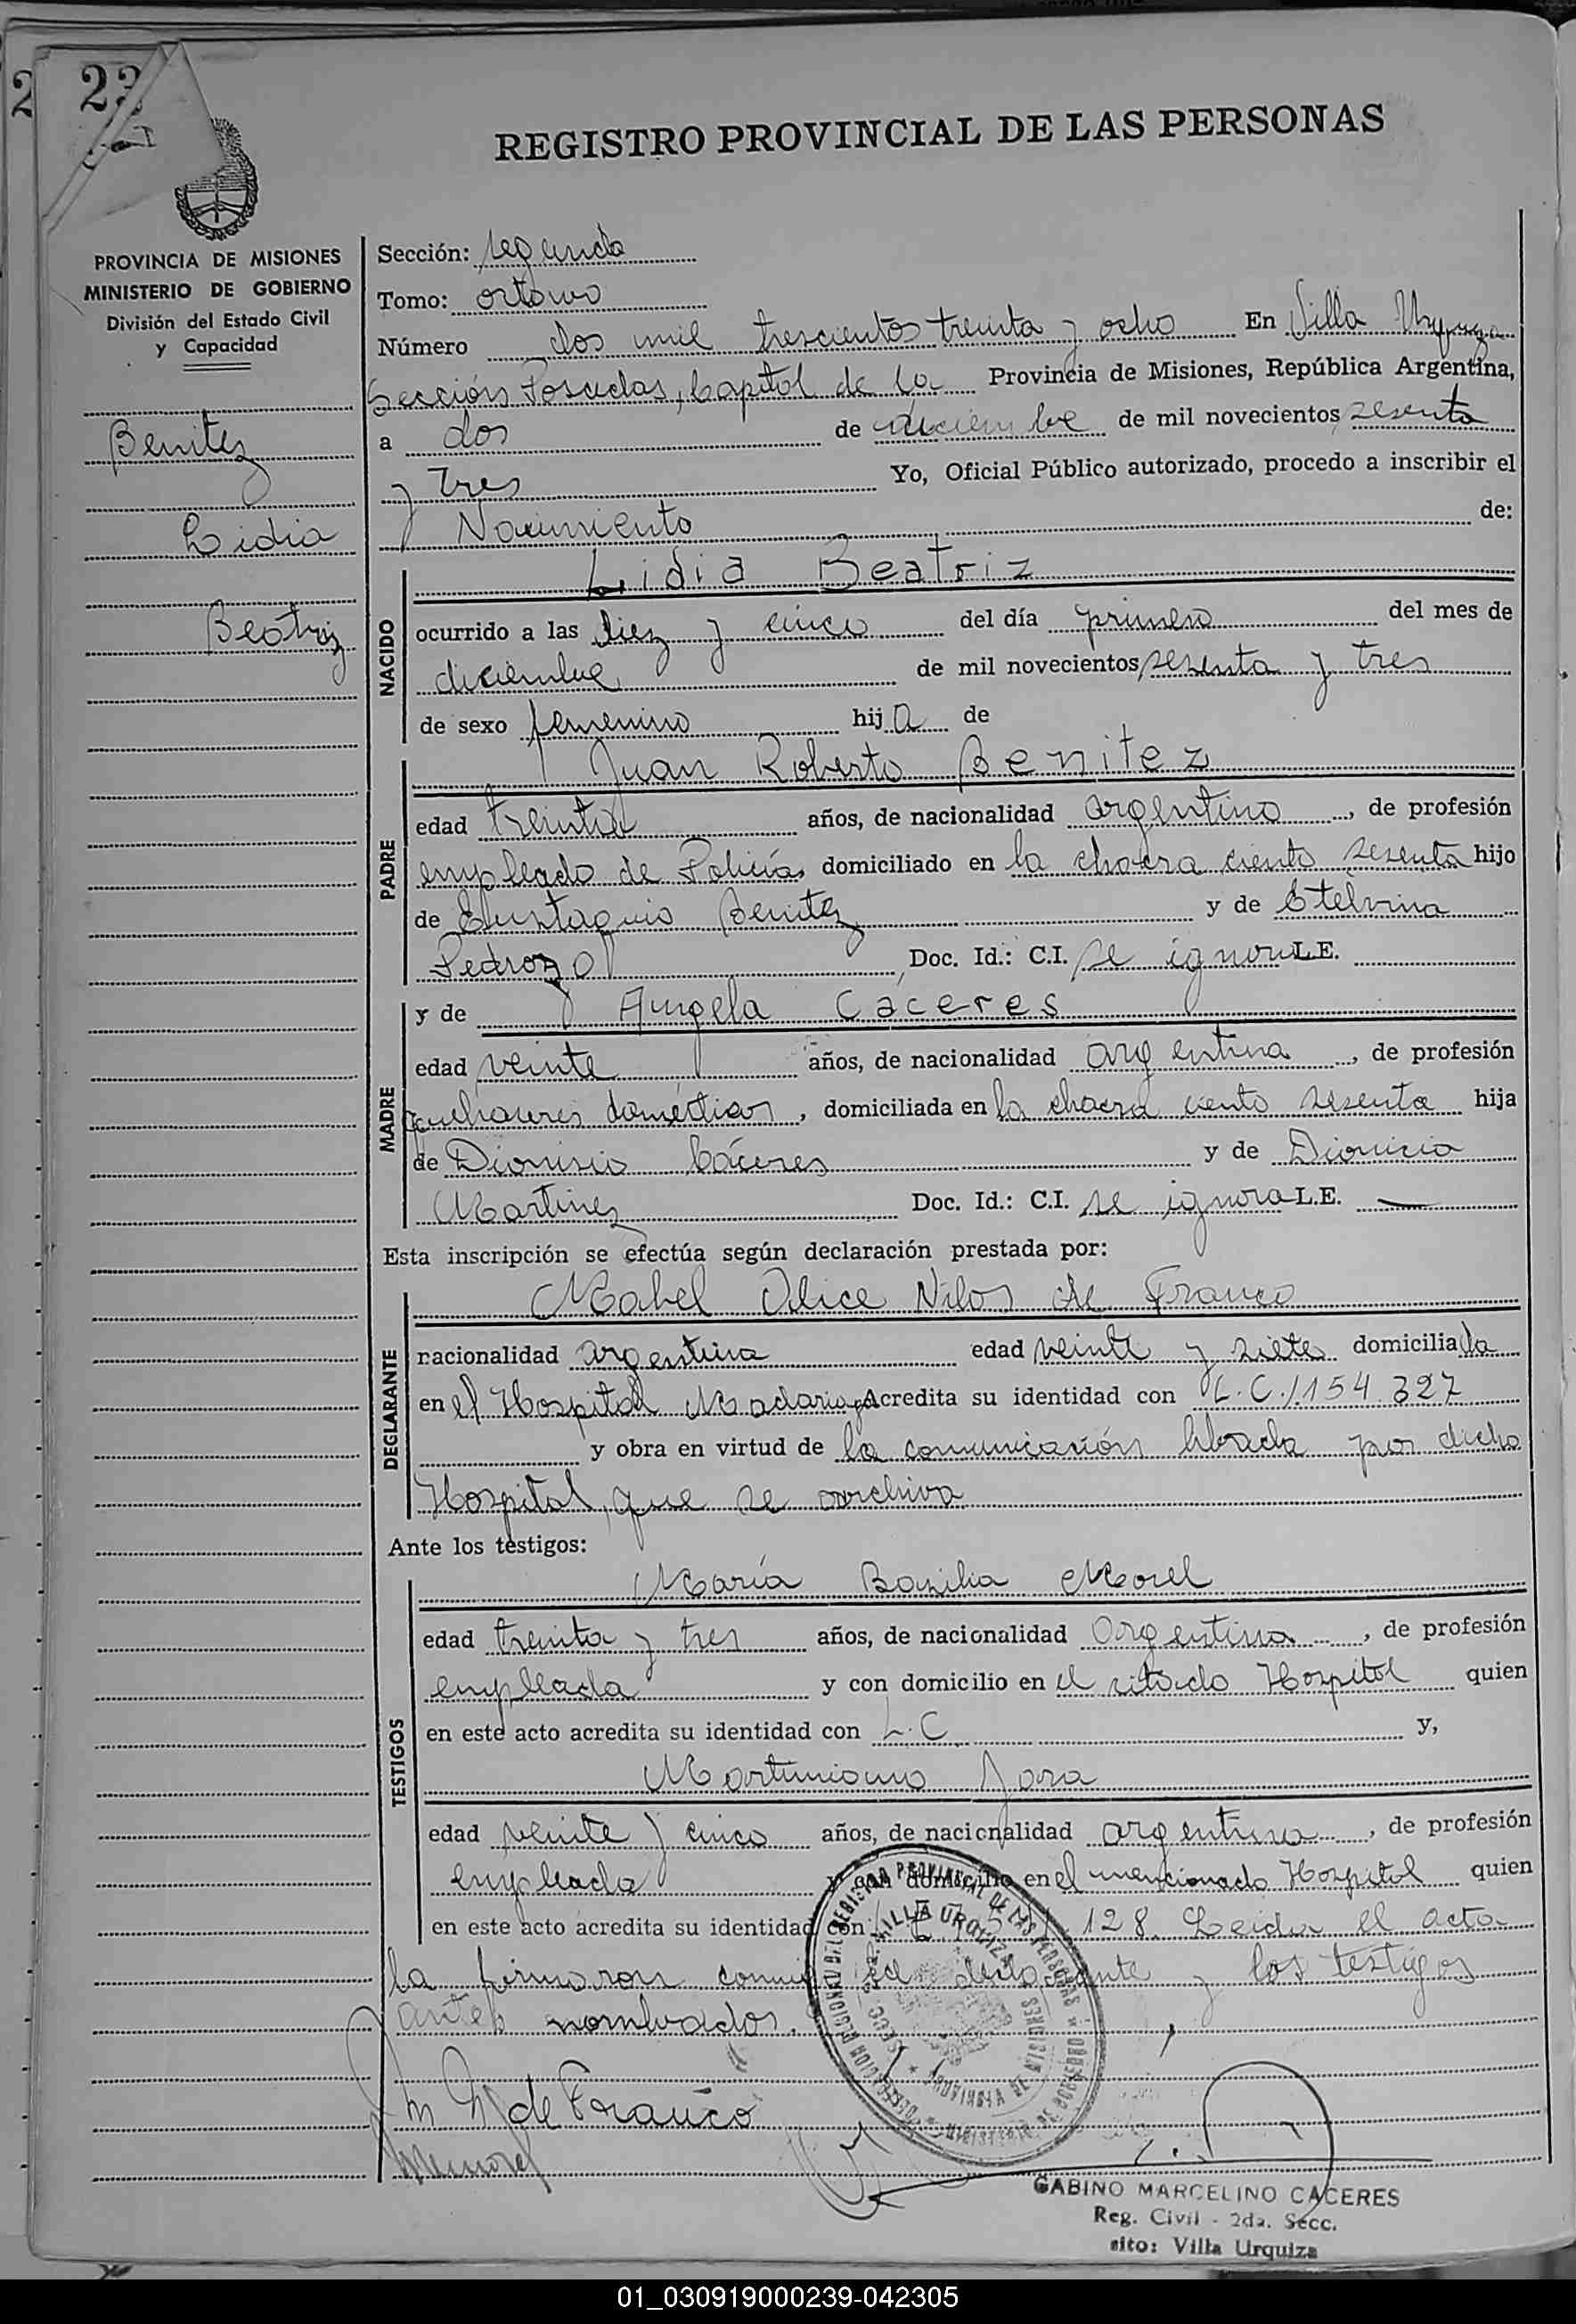 2 23
REGISTRO PROVINCIAL DE LAS PERSONAS
PROVINCIA DE MISIONES
MINISTERIO DE GOBIERNO
División del Estado Civil
y Capacidad
Benitez
Lidia
Beatriz
Sección: segunda
Tomo: octavo
Número dos mil trescientos treinta y ocho En Villa Urquiza
Sección Posadas, Capital de la Provincia de Misiones, República Argentina,
a dos de diciembre de mil novecientos sesenta
y tres Yo, Oficial Público autorizado, procedo a inscribir el
Nacimiento de:
NACIDO
Lidia Beatriz
ocurrido a las diez y cinco del día primero del mes de
diciembre de mil novecientos sesenta y tres
de sexo femenino hija de
PADRE
Juan Roberto Benitez
edad treinta años, de nacionalidad argentino, de profesión
empleado de Policía, domiciliado en la chacra ciento sesenta hijo
de Eustaquio Benitez y de Etelvina
Pedrozo Doc. Id.: C.I. se ignora L.E.
MADRE
y de Angela Caceres
edad veinte años, de nacionalidad argentina, de profesión
quehaceres domésticos, domiciliada en la chacra ciento sesenta hija
de Dionisio Cáceres y de Dionicia
Martinez Doc. Id.: C.I. se ignora L.E. —
Esta inscripción se efectúa según declaración prestada por:
DECLARANTE
Mabel Alice de Franco
nacionalidad argentina edad veinte y siete domiciliada
en el Hospital Madariaga Acredita su identidad con L.C. 1.154.327
y obra en virtud de la comunicación librada por dicho
Hospital, que se archiva
Ante los testigos:
TESTIGOS
María Basilia Morel
edad treinta y tres años, de nacionalidad argentina, de profesión
empleada y con domicilio en el citado Hospital quien
en este acto acredita su identidad con L.C. y,
Martiniano Jara
edad veinte y cinco años, de nacionalidad argentino, de profesión
empleado y con domicilio en el mencionado Hospital quien
en este acto acredita su identidad con 128. Leida el acta
la firmaron conmigo declarante y los testigos
antes nombrados.
DELEGACION REGIONAL DEL REGISTRO PROVINCIAL DE LAS PERSONAS
VILLA URQUIZA
PROVINCIA DE MISIONES
M N de Franco
GABINO MARCELINO CACERES
Reg. Civil - 2da. Secc.
sito: Villa Urquiza
01_030919000239-042305